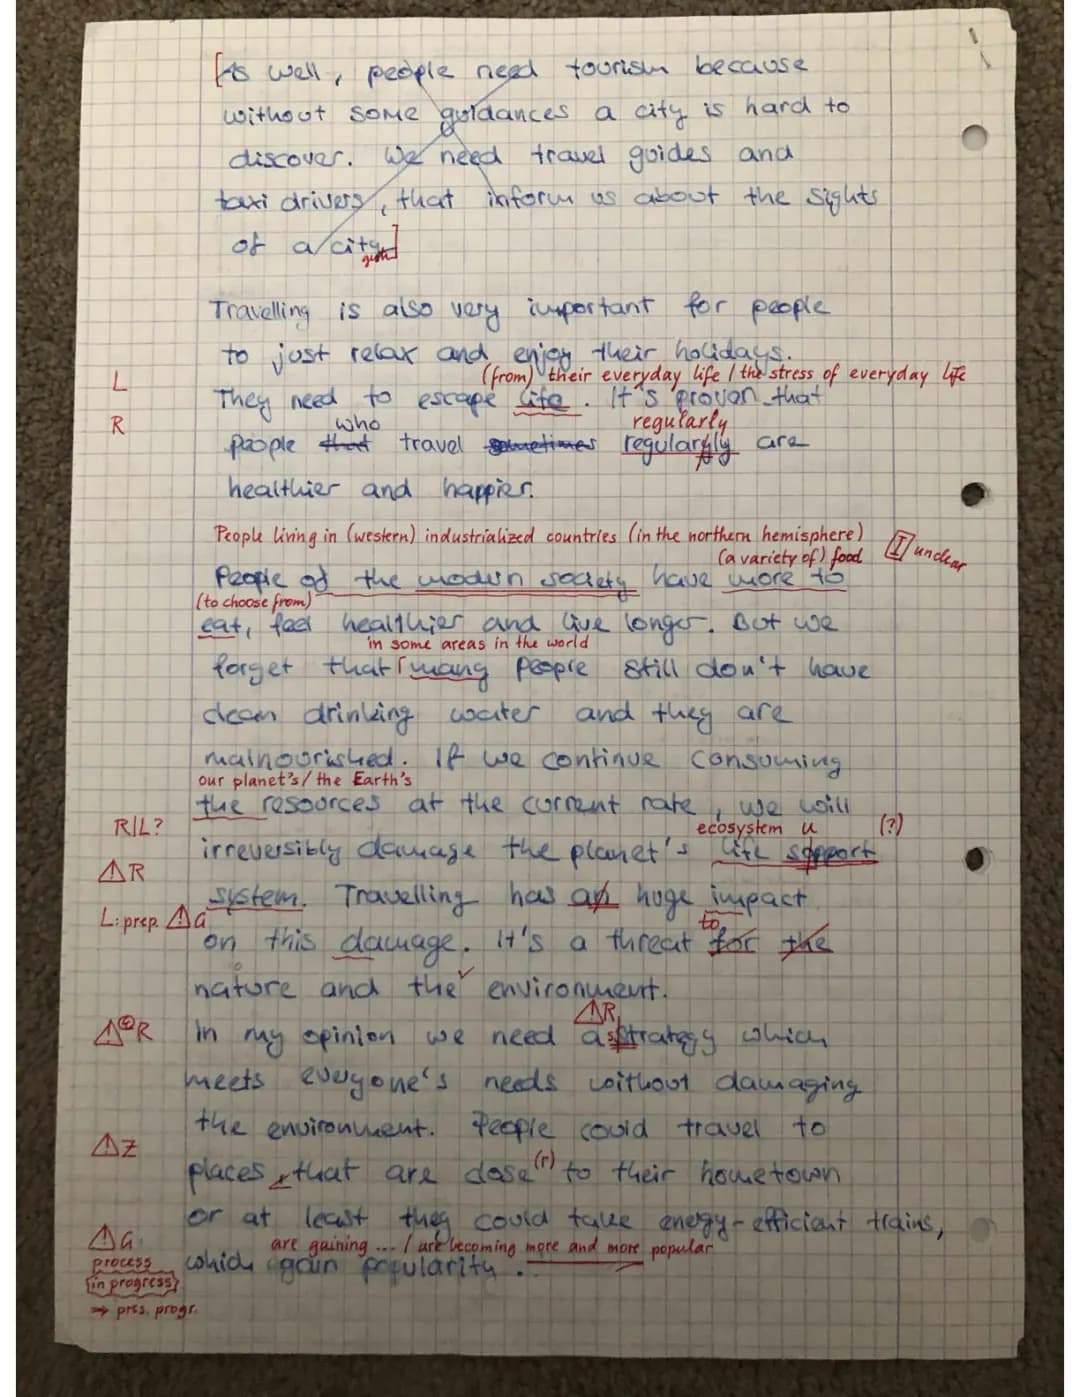 [As well, people need tourism because
without some guidances a city is hard to
discover. We need travel guides and
taxi drivers, that inform us about the sights
of a city.]
Travelling is also very important for people
to just relax and enjoy their holidays.
(from) their everyday life / the stress of everyday life
L They need to escape life. It's proven that
who regularly
R people that travel sometimes regularyly are
healthier and happier.
People living in (western) industrialized countries (in the northern hemisphere) I unclear
(a variety of) food
People of the modern society have more to
(to choose from)
eat, feel healthier and live longer. But we
in some areas in the world
forget that many people still don't have
clean drinking water and they are
malnourished. If we continue consuming
our planet's / the Earth's
the resources at the current rate, we will
R/L? ecosystem u (?)
irreversibly damage the planet's life support
⚠R system. Travelling has an huge impact
L: prep. ⚠G to
on this damage. It's a threat for the
nature and the environment.
⚠R
⚠R In my opinion we need a strategy which
meets everyone's needs without damaging
the environment. People could travel to
⚠Z places, that are close(r) to their hometown
or at least they could take energy-efficient trains,
⚠G are gaining ... / are becoming more and more popular
process which gain popularity.
(in progress)
→ pres. progr.